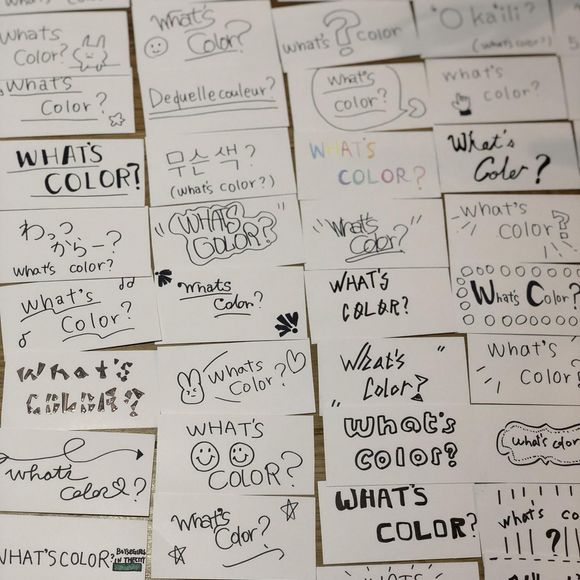 What's
Color?
What's
Color?
what's ? color
'O ka'ili?
(what's color?)
What's
Color?
De quelle couleur?
what's
color?
what's
color?
WHAT'S
COLOR?
무슨 색?
(what's color?)
WHAT'S
COLOR?
What's
Color?
わっつ
からー?
what's color?
WHAT'S
COLOR?
What's
Color?
what's
color?
what's
Color?
whats
Color?
WHAT'S
COLOR?
What's Color?
What's
COLOR?
Whats
Color?
What's
Color?
What's
Color?
what's
color?
WHAT'S
COLOR?
what's
color?
what's color
WHAT'S COLOR?
What's
Color?
WHAT'S
COLOR?
what's co
?